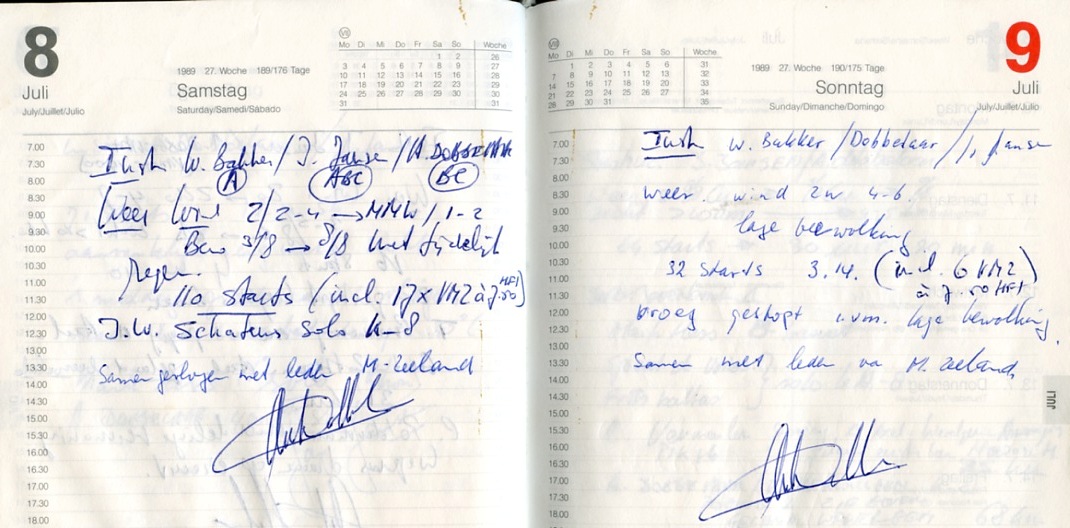 8
Juli
July/Juillet/Julio
1989 27. Woche 189/176 Tage
Samstag
Saturday/Samedi/Sábado
VII
Mo Di Mi Do Fr Sa So Woche
1 2 26
3 4 5 6 7 8 9 27
10 11 12 13 14 15 16 28
17 18 19 20 21 22 23 29
24 25 26 27 28 29 30 30
31 31
7.00
7.30
8.00
8.30
9.00
9.30
10.00
10.30
11.00
11.30
12.00
12.30
13.00
13.30
14.00
14.30
15.00
15.30
16.00
16.30
17.00
17.30
18.00
W. Bakker / J. Janse /
A ABC BC
Weer Wind 2/2-4 → / 1-2
Bew 3/8 → 8/8 met tijdelijk
regen.
110 starts (incl. 17x VM2 à 7.50 HFl)
J.W. Schatens solo K-8
Samen gevlogen met leden M-Zeeland
VIII
Mo Di Mi Do Fr Sa So Woche
1 2 3 4 5 6 31
7 8 9 10 11 12 13 32
14 15 16 17 18 19 20 33
21 22 23 24 25 26 27 34
28 29 30 31 35
1989 27. Woche 190/175 Tage
Sonntag
Sunday/Dimanche/Domingo
9
Juli
July/Juillet/Julio
7.00
7.30
8.00
8.30
9.00
9.30
10.00
10.30
11.00
11.30
12.00
12.30
13.00
13.30
14.00
14.30
15.00
15.30
16.00
16.30
17.00
17.30
18.00
W. Bakker / Dobbelaar / J. Janse
weer. wind zw. 4-6.
lage bewolking
32 starts 3.14. (incl. 6 VM2)
à 7.50 HFl
vroeg gestopt i.v.m. lage bewolking.
Samen met leden va M. Zeeland.
JULI